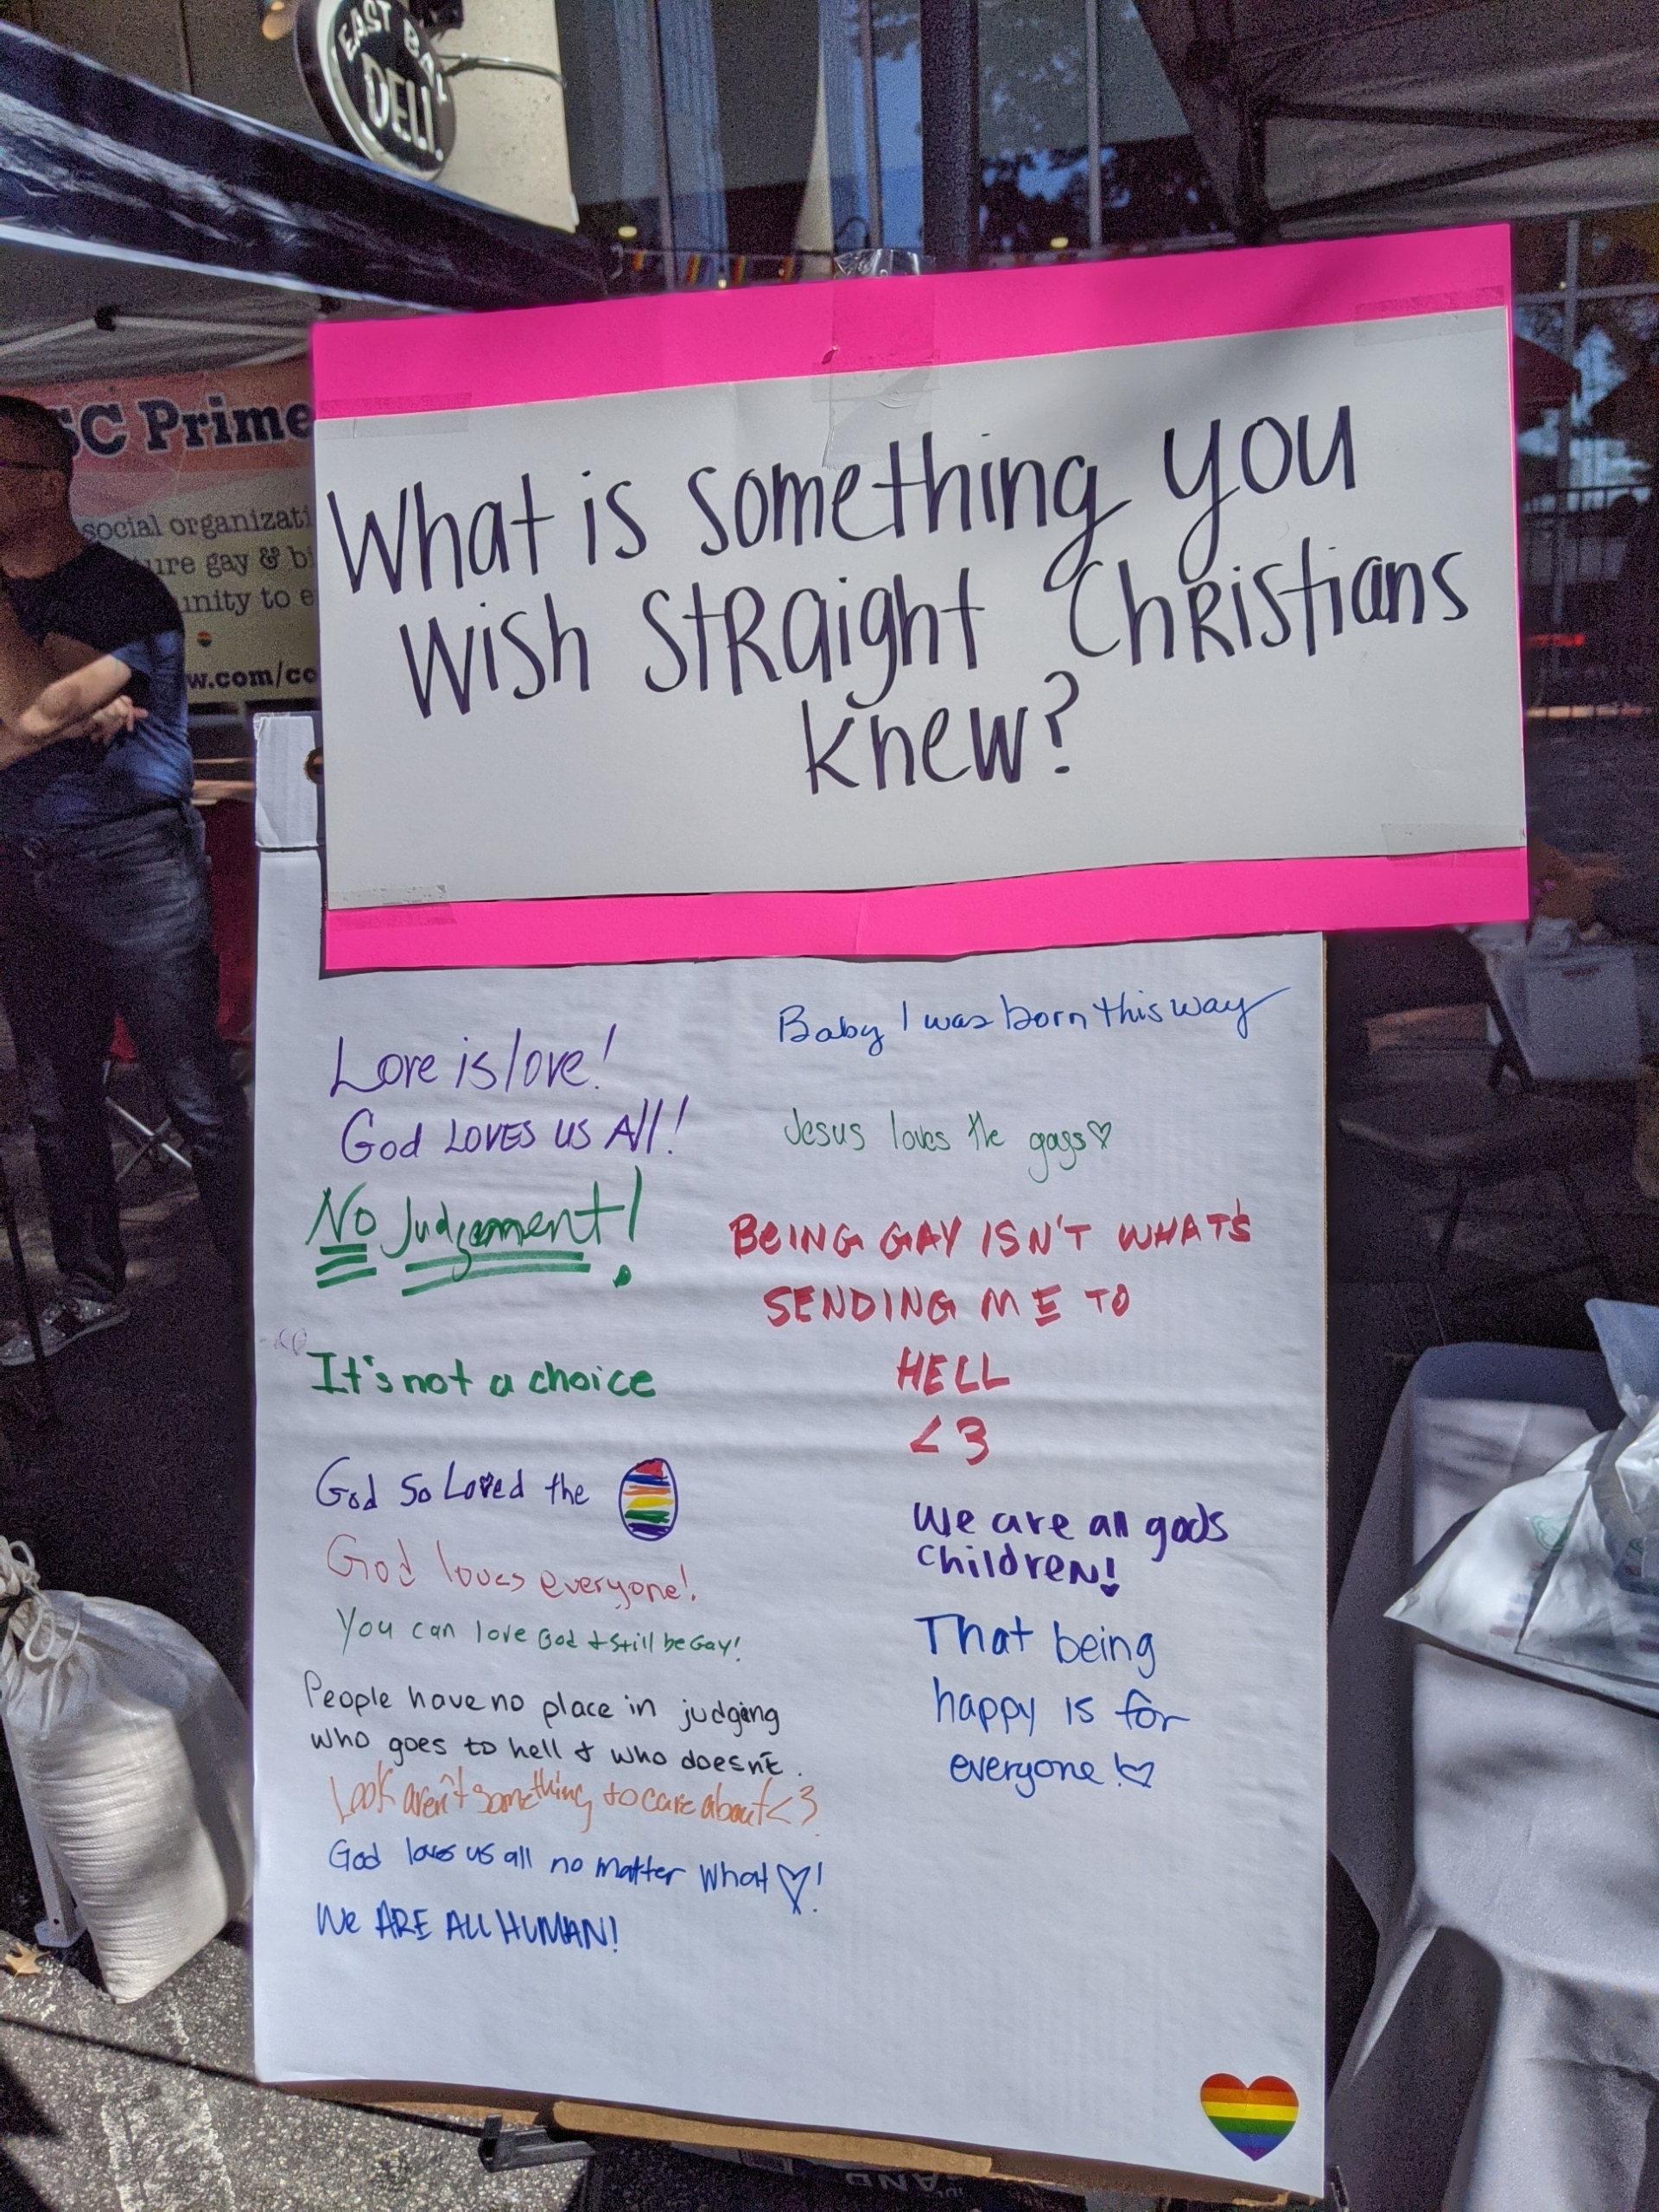 EAST BAY
DELI
SC Prime
social organizati
ure gay & bi
unity to e
w.com/co
What is something you
wish straight Christians
knew?
Love is love!
God LOVES US All!
No Judgement!
It's not a choice
God so Loved the
God loves everyone!
You can love God & still be Gay!
People have no place in judging
who goes to hell & who doesn't.
Look aren't something to care about <3
God loves us all no matter what ♡!
We ARE ALL HUMAN!
Baby I was born this way
Jesus loves the gays ♡
BEING GAY ISN'T WHAT'S
SENDING ME TO
HELL
<3
We are all gods
children!
That being
happy is for
everyone! ♡